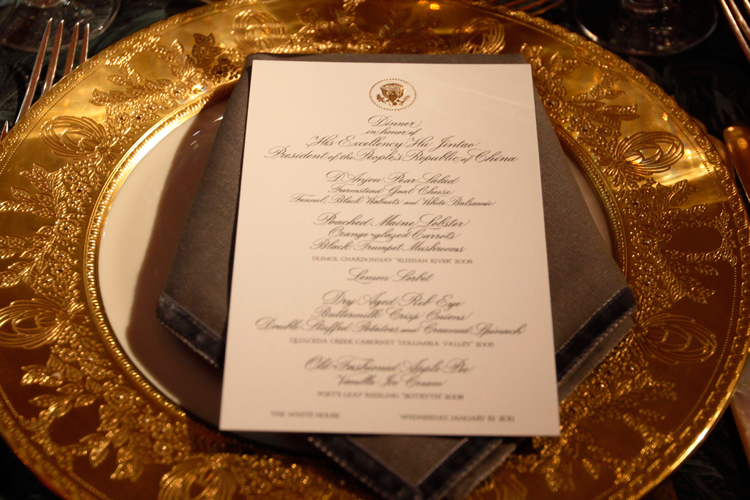 Dinner
in honor of
His Excellency Hu Jintao
President of the People's Republic of China
D'Anjou Pear Salad
Farmstead Goat Cheese
Fennel, Black Walnuts and White Balsamic
Poached Maine Lobster
Orange-glazed Carrots
Black Trumpet Mushrooms
DUMOL CHARDONNAY "RUSSIAN RIVER" 2008
Lemon Sorbet
Dry Aged Rib Eye
Buttermilk Crisp Onions
Double Stuffed Potatoes and Creamed Spinach
QUILCEDA CREEK CABERNET "COLUMBIA VALLEY" 2005
Old Fashioned Apple Pie
Vanilla Ice Cream
POET'S LEAP RIESLING "BOTRYTIS" 2008
THE WHITE HOUSE WEDNESDAY, JANUARY 19, 2011